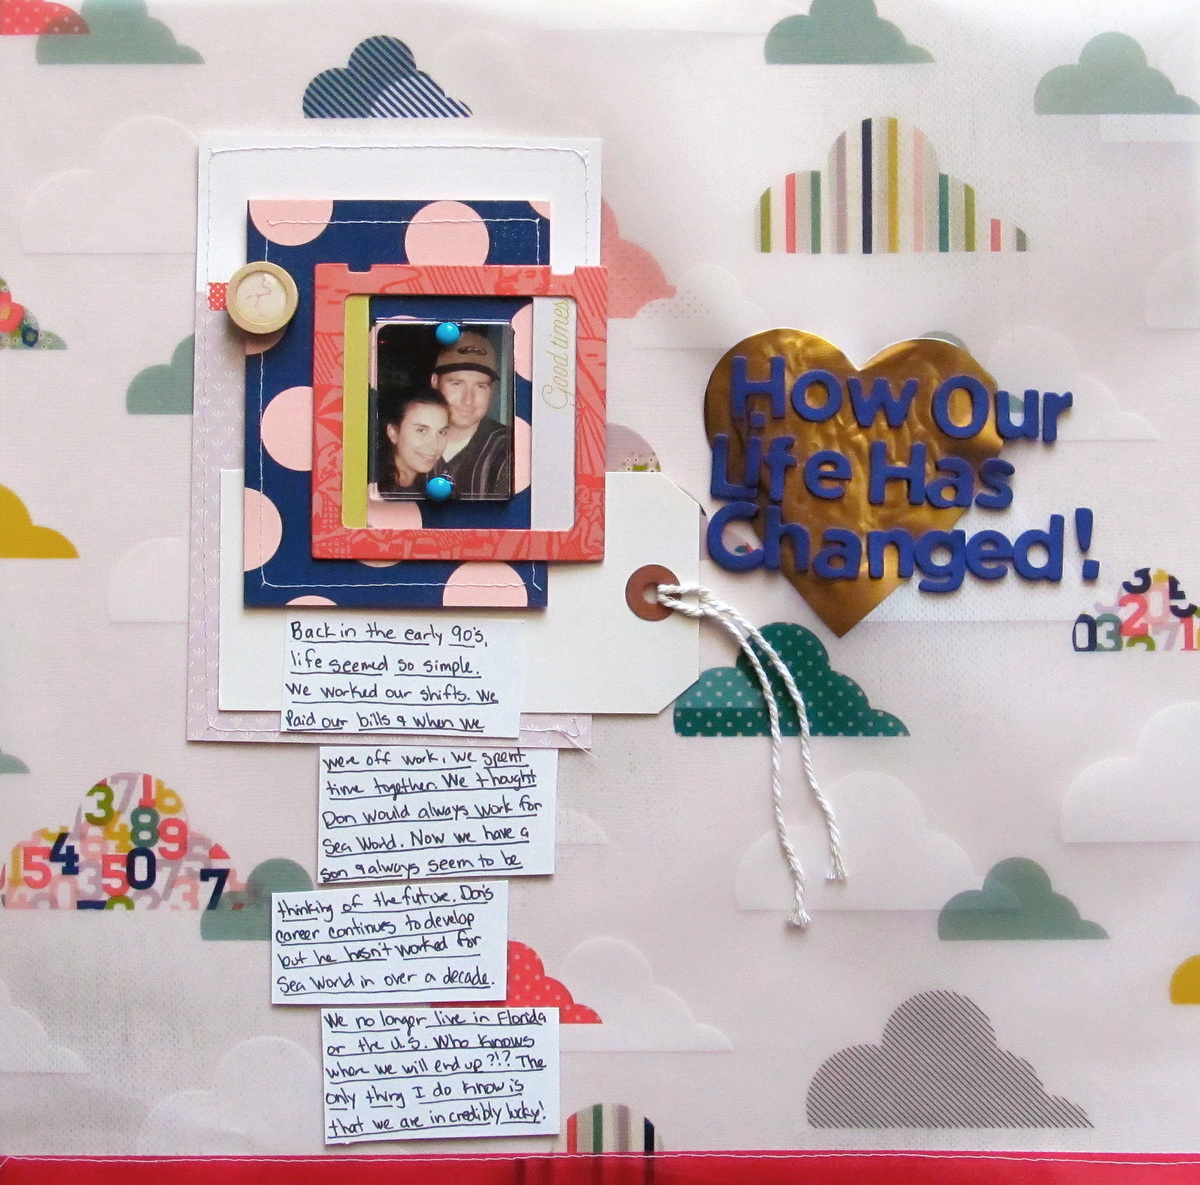 Good times
How Our
Life Has
Changed!
Back in the early 90's,
life seemed so simple.
We worked our shifts. We
Paid our bills & when we
were off work, we spent
time together. We thought
Don would always work for
Sea World. Now we have a
son & always seem to be
thinking of the future. Don's
career continues to develop
but he hasn't worked for
Sea World in over a decade.
We no longer live in Florida
or the U.S. Who knows
where we will end up?!? The
only thing I do know is
that we are incredibly lucky!